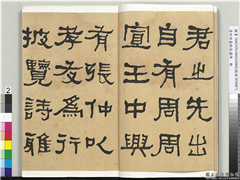 君之先出
自有周周
宣王中興
有張仲以
孝友為行
披覽詩雅
2